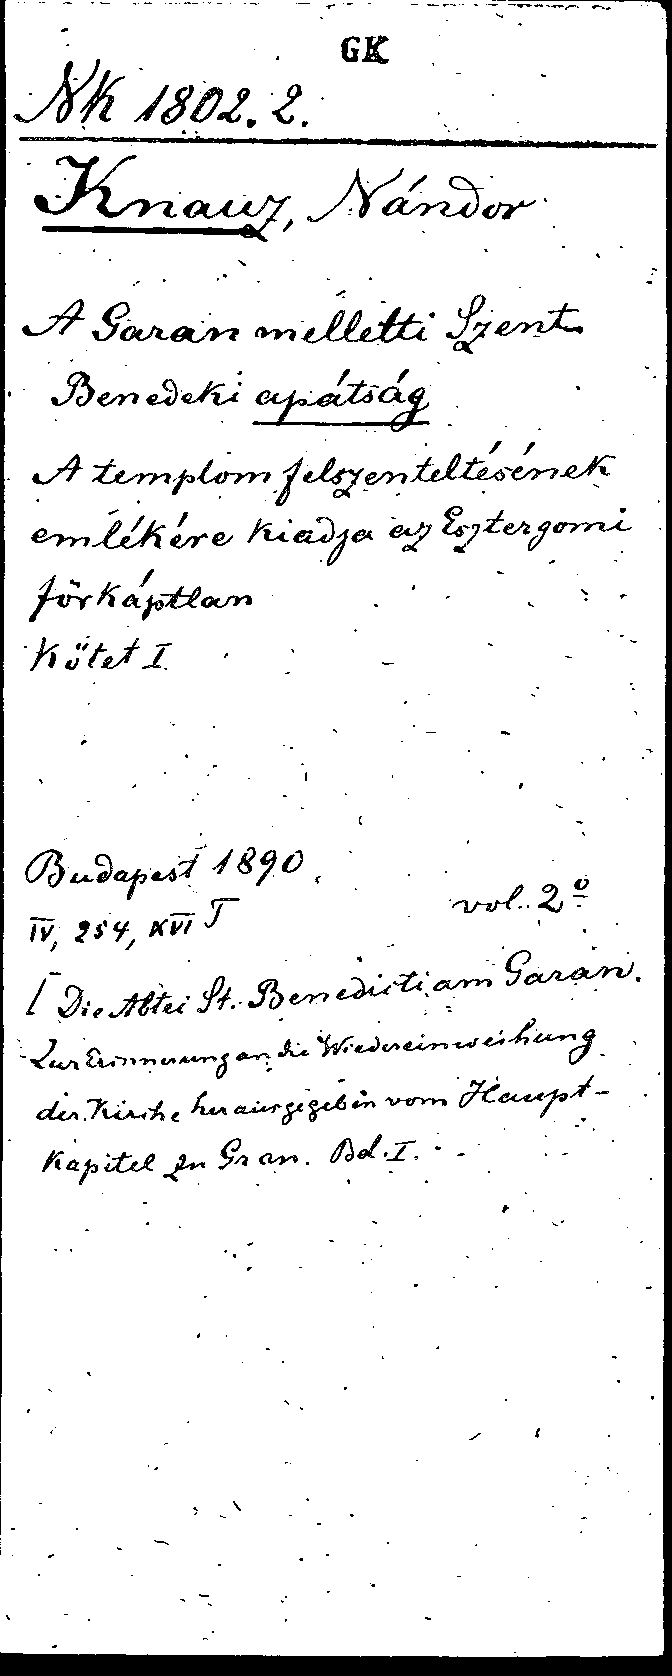 GK
NK 1802.2.
Knauz, Nándor
A Garan melletti Szent
Benedeki apátság
A templom felszenteltésének
emlékére kiadja az Esztergomi
förkáptlan
Kötet I
Budapest 1890
vol. 2º
IV, 254, XVI T
[Die Abtei St. Benedicti am Garan.
Zur Erinnerung an die Wiedereinweihung
der Kirche herausgegeben vom Haupt-
kapitel zu Gran. Bd. I.